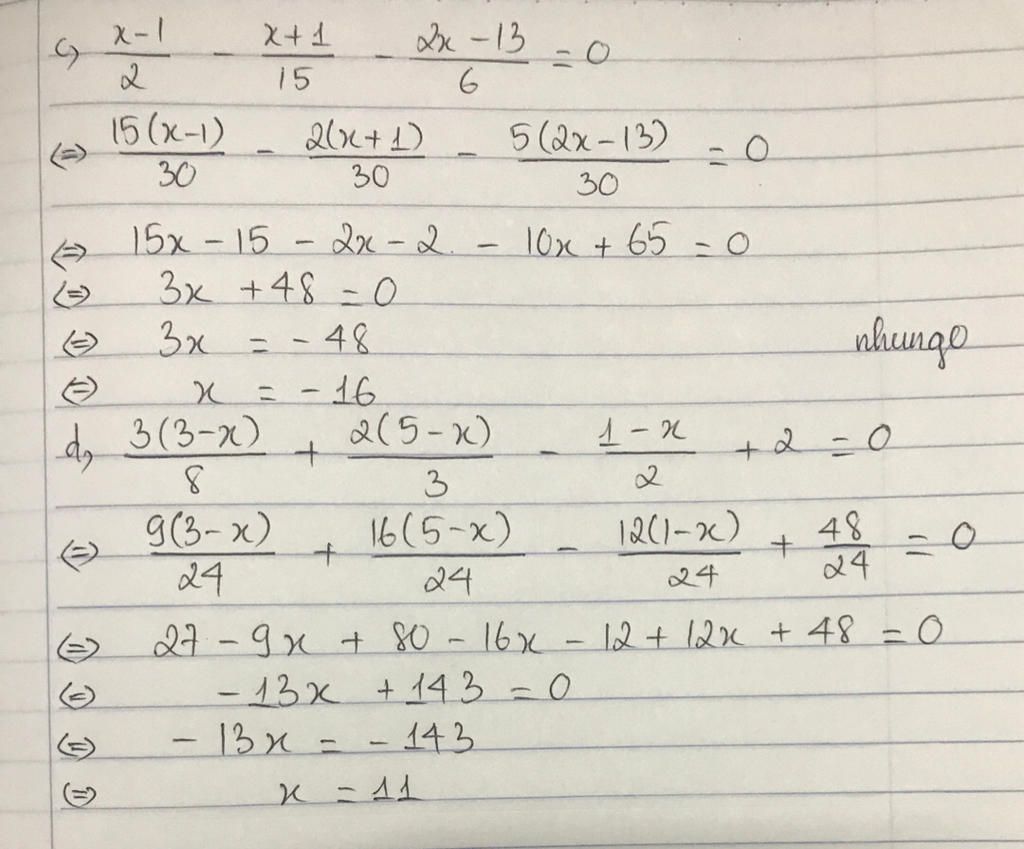 c, (x-1)/2 - (x+1)/15 - (2x-13)/6 = 0
⇔ 15(x-1)/30 - 2(x+1)/30 - 5(2x-13)/30 = 0
⇔ 15x - 15 - 2x - 2 - 10x + 65 = 0
⇔ 3x + 48 = 0
⇔ 3x = -48 nhungo
⇔ x = -16
d, 3(3-x)/8 + 2(5-x)/3 - (1-x)/2 + 2 = 0
⇔ 9(3-x)/24 + 16(5-x)/24 - 12(1-x)/24 + 48/24 = 0
⇔ 27 - 9x + 80 - 16x - 12 + 12x + 48 = 0
⇔ -13x + 143 = 0
⇔ -13x = -143
⇔ x = 11